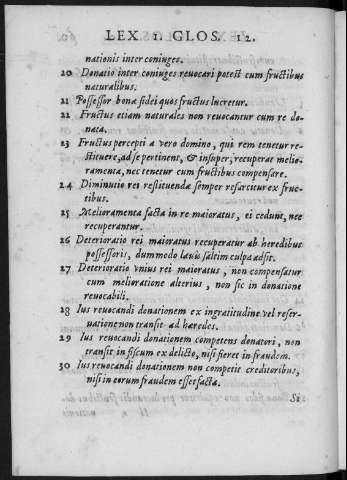 LEX. 1. GLOS. 12.
nationis inter coniuges.
20 Donatio inter coniuges reuocari potest cum fructibus
naturalibus.
21 Possessor bonæ fidei quos fructus lucretur.
22 Fructus etiam naturales non reuocantur cum re do-
nata.
23 Fructus percepti a vero domino, qui rem tenetur re-
stituere, ad se pertinent, & insuper, recuperat melio-
ramenta, nec tenetur cum fructibus compensare.
24 Diminutio rei restituendæ semper resarcitur ex fruc-
tibus.
25 Melioramenta facta in re maioratus, ei cedunt, nec
recuperantur.
26 Deterioratio rei maioratus recuperatur ab heredibus
possessoris, dummodo leuis saltim culpa adsit.
27 Deterioratio vnius rei maioratus, non compensatur
cum melioratione alterius, non sic in donatione
reuocabili.
28 Ius reuocandi donationem ex ingratitudine vel reser-
uatione non transit ad hæredes.
29 Ius reuocandi donationem competens donatori, non
transit in fiscum ex delicto, nisi fieret in fraudem.
30 Ius reuocandi donationem non competit creditoribus,
nisi in eorum fraudem esset facta.
Si